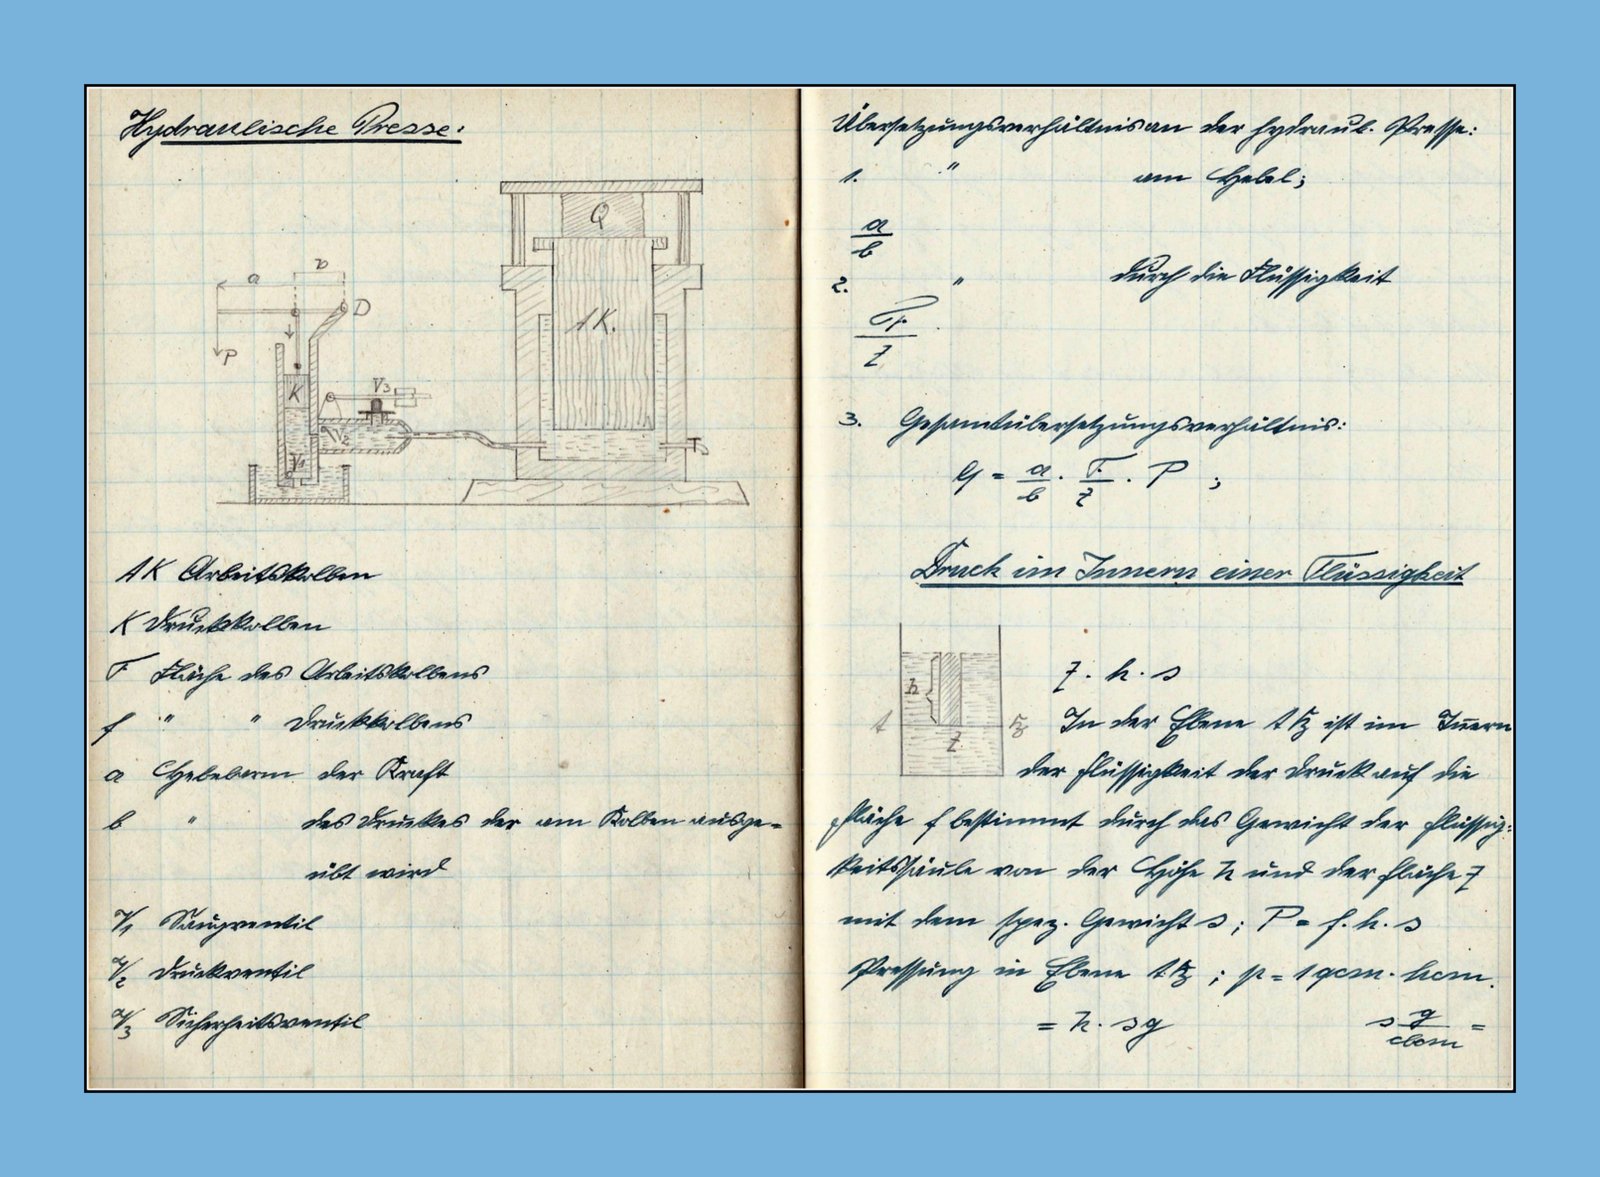 Hydraulische Presse:
Q
b
a
D
AK.
P
K
V3
V2
V1
AK Arbeitskolben
K Druckkolben
F Fläche des Arbeitskolbens
f " " Druckkolbens
a Hebelarm der Kraft
b " des Druckes der am Kolben ausge-
übt wird
V1 Saugventil
V2 Druckventil
V3 Sicherheitsventil
Übersetzungsverhältnis an der hydraul. Presse:
1. " am Hebel;
a
b
2. " durch die Flüssigkeit
F
f
3. Gesamtübersetzungsverhältnis:
Q = a/b · F/f · P ;
Druck im Innern einer Flüssigkeit
h
f
f · h · s
In der Ebene ist im Innern
der Flüssigkeit der Druck auf die
Fläche f bestimmt durch das Gewicht der Flüssig-
keitssäule von der Höhe h und der Fläche f
mit dem spez. Gewicht s ; P = f. h. s
Pressung in Ebene ; p = 1 qcm · h cm.
= h. s g s g/cbcm =